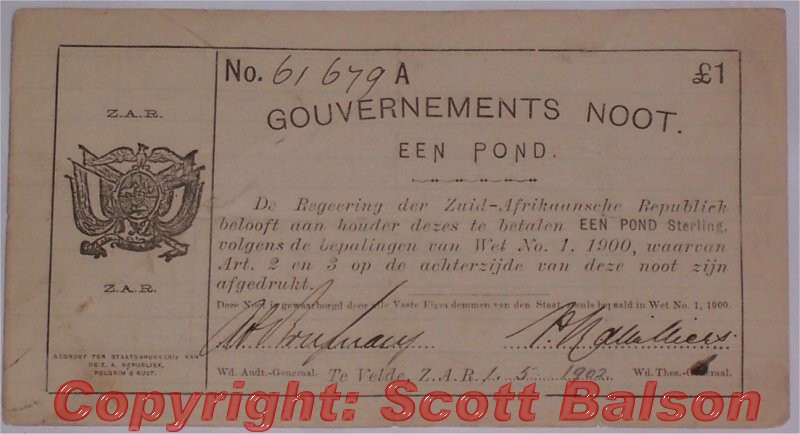 No. 61679 A £1
Z.A.R.
GOUVERNEMENTS NOOT.
EEN POND.
De Regeering der Zuid-Afrikaansche Republiek
belooft aan houder dezes te betalen EEN POND Sterling,
volgens de bepalingen van Wet No. 1. 1900, waarvan
Art. 2 en 3 op de achterzijde van deze noot zijn
afgedrukt.
Z.A.R.
Deze Noot is gewaarborgd door alle Vaste Eigendommen van den Staat zooals bepaald in Wet No. 1, 1900.
GEDRUKT TER STAATSDRUKKERIJ VAN
DE Z. A. REPUBLIEK,
PILGRIM'S RUST.
Wd. Audt.-Generaal. Te Velde, Z.A.R. 1. 5. 1902. Wd. Thes.-Generaal.
Copyright: Scott Balson